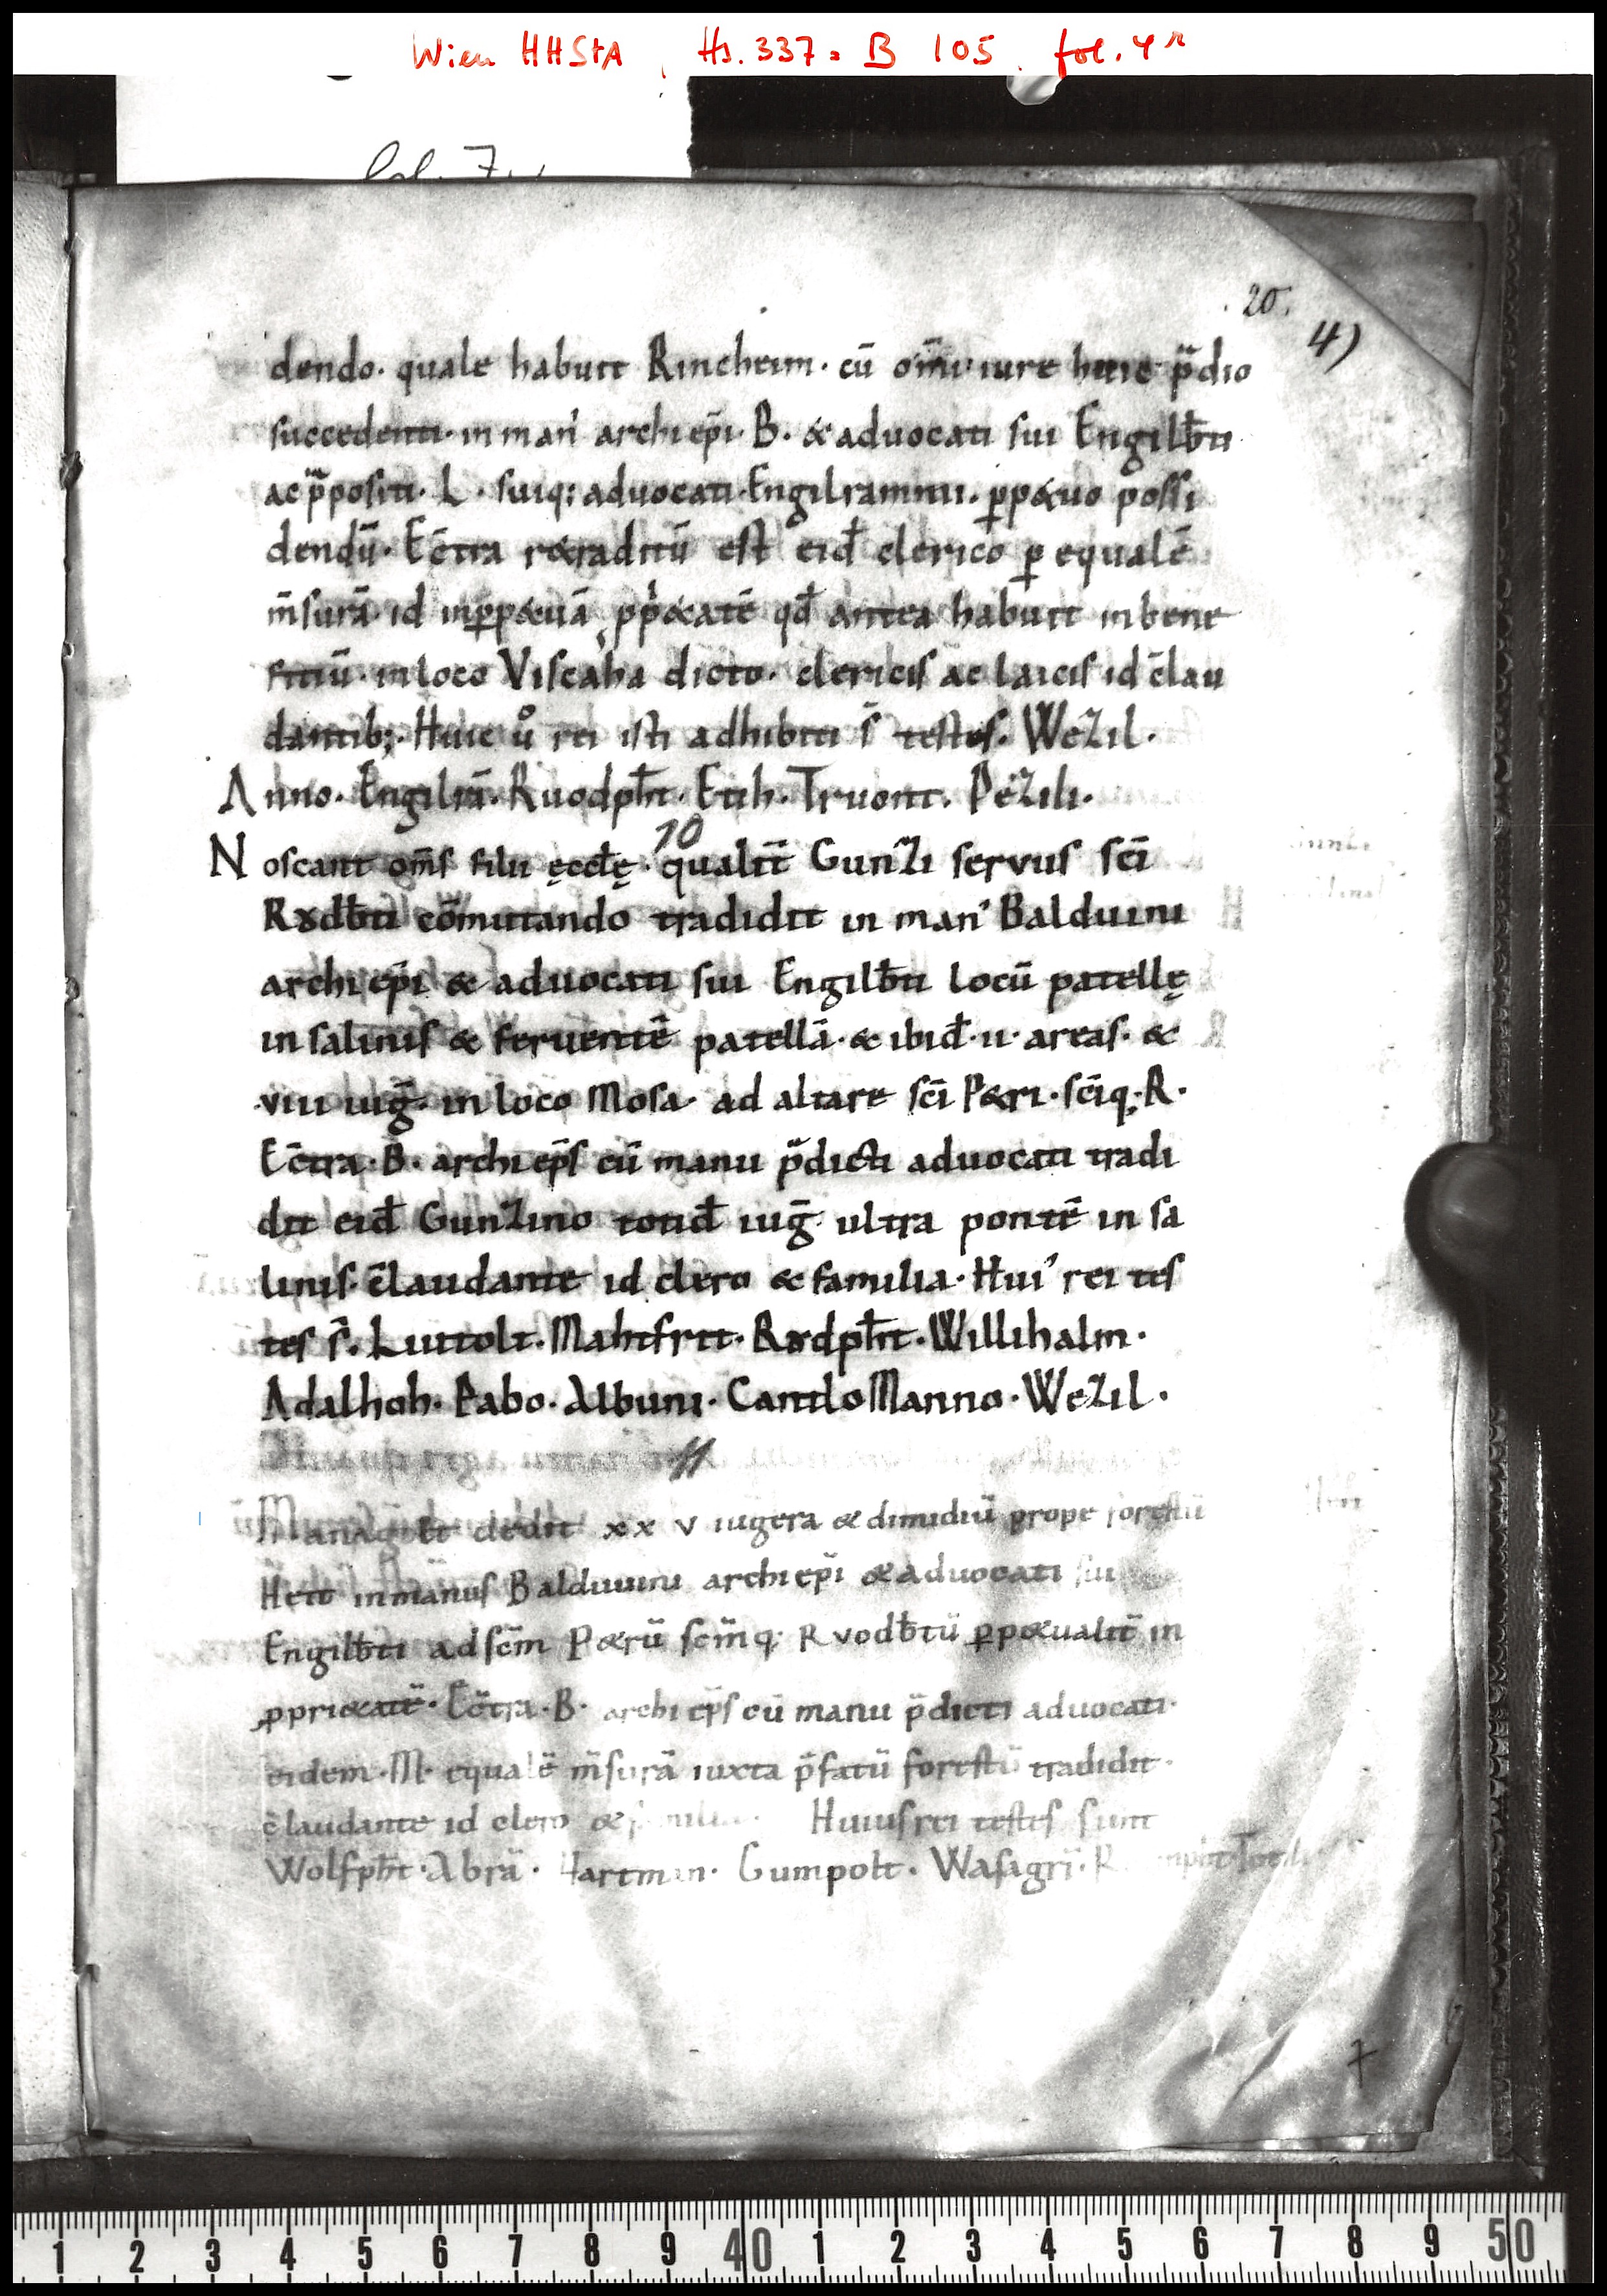 Wien HHStA, Hs. 337 = B 105 fol. 4r
fol. 7
20.
4)
dendo. quale habuit Rincheim. cū om̄i iure huic p̄dio
succedenti. in man' archi ep̄i. B. & aduocati sui Engilb̄ti
ac p̄positi. L. suiq; aduocati. Engilrammi. ꝑp&uo possi
dendū. Ec̄tra r&raditū est eid̄ clerico ꝑ equalē
m̄surā. id inꝑp&uā ꝓpri&atē qd̄ antea habuit in bene
fitiū. in loco Viscaha dicto. clericis ac laicis id c̄lau
dantib;. Huic ů rei isti adhibiti s̄ testes. Wezil.
Anno. Engilrā. Ruodph̄t. Etih. Truont. Pezili.
10
Noscant om̄s filii ęccłę. qualit̄ Gunzi servus sc̄i
Rȣdb̄ti cōmutando tradidit in man' Balduuini
archi ep̄i & aduocati sui Engilb̄ti locū patellę
in salinis & feruentē patellā. & ibid̄. ii. areas. &
viii iuḡ. in loco Mosa. ad altare sc̄i P&ri. sc̄iq; R.
Ec̄tra. B. archi ep̄s cū manu p̄dicti aduocati tradi
dit eid̄ Gunzino totid̄ iuḡ. ultra pontē in sa
linis. c̄laudante id clero & familia. Hui' rei tes
tes s̄. Liutolt. Mahtfrit. Rȣdph̄t. Willihalm.
Adalhoh. Pabo. Albuni. Cantilo Manno. Wezil.
11
Managolt dedit xx v iugera & dimidiū prope forestū
Heit in manus Balduuini archi ep̄i & aduocati sui
Engilb̄ti ad sc̄m P&rū sc̄mq; Rvodb̄tū ꝑp&ualit̄ in
ꝓpri&atē. Ec̄tra. B. archi ep̄s cū manu p̄dicti aduocati.
eidem. M. equalē m̄surā iuxta p̄fatū forestū tradidit.
c̄laudante id clero & familia. Huius rei testes sunt
Wolfph̄t. Abrā. Hartman. Gumpolt. Wasagrī.
7
1 2 3 4 5 6 7 8 9 40 1 2 3 4 5 6 7 8 9 50